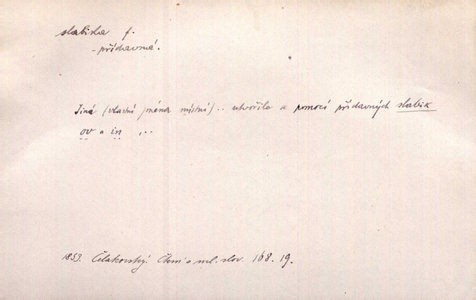 slabika f.
- přídavná.
Jiná (vlastní jména místní) .. utvořila s pomocí přídavných slabik
ov a in ,..
1853. Čelakovský. Čtení o ml. slov. 168. 19.